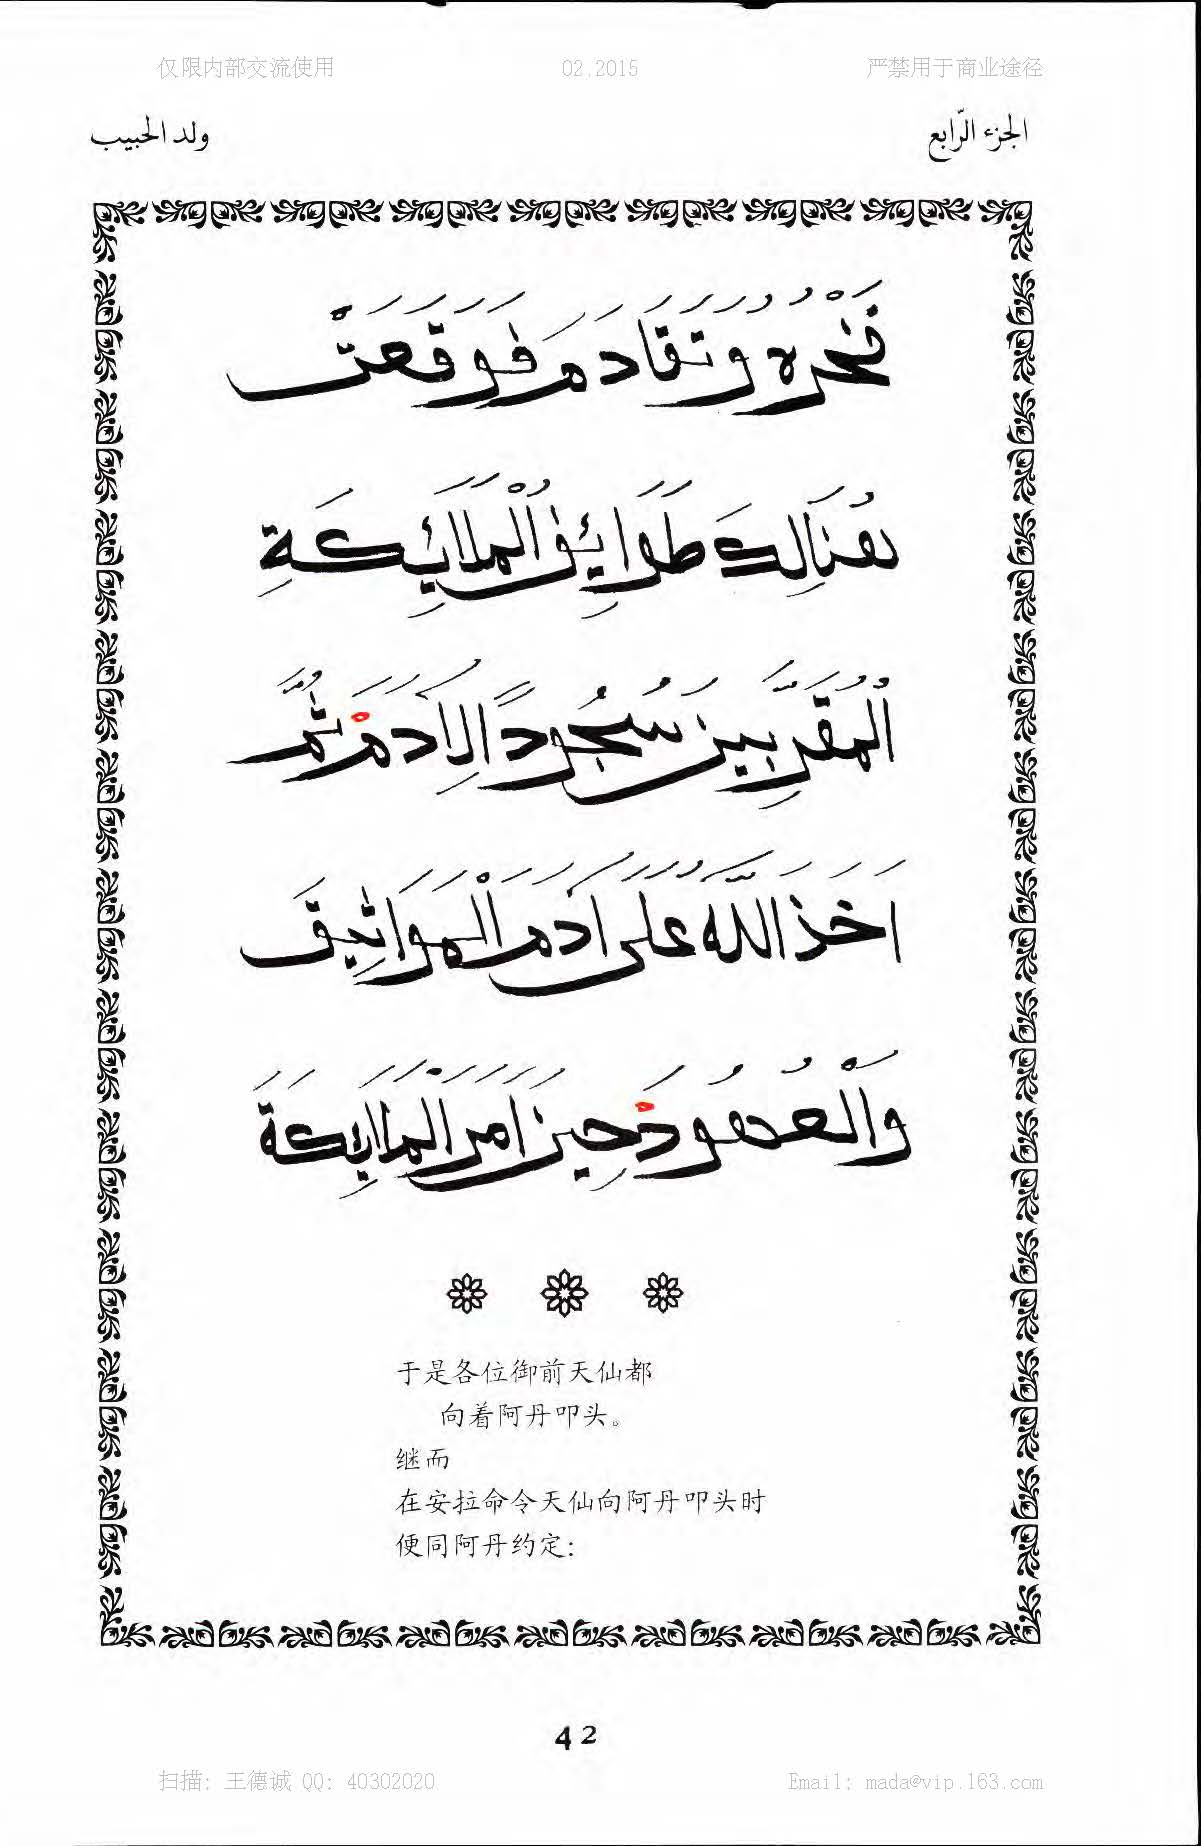 仅限内部交流使用 02.2015 严禁用于商业途径
الجزء الرّابع ولد الحبيب
فَخْرُهُ وَتَقَادَمَ فَوَقَعَتْ
هُنَالِكَ طَوَائِفُ الْمَلَائِكَةِ
الْمُقَرَّبِينَ سُجُودًا لِاٰدَمَ ثُمَّ
اَخَذَ اللهُ عَلَى اٰدَمَ الْمَوَاثِيقَ
وَالْعُهُودَ حِينَ اَمَرَ الْمَلَائِكَةَ
于是各位御前天仙都
向着阿丹叩头。
继而
在安拉命令天仙向阿丹叩头时
便同阿丹约定:
42
扫描: 王德诚 QQ: 40302020 Email: mada@vip.163.com